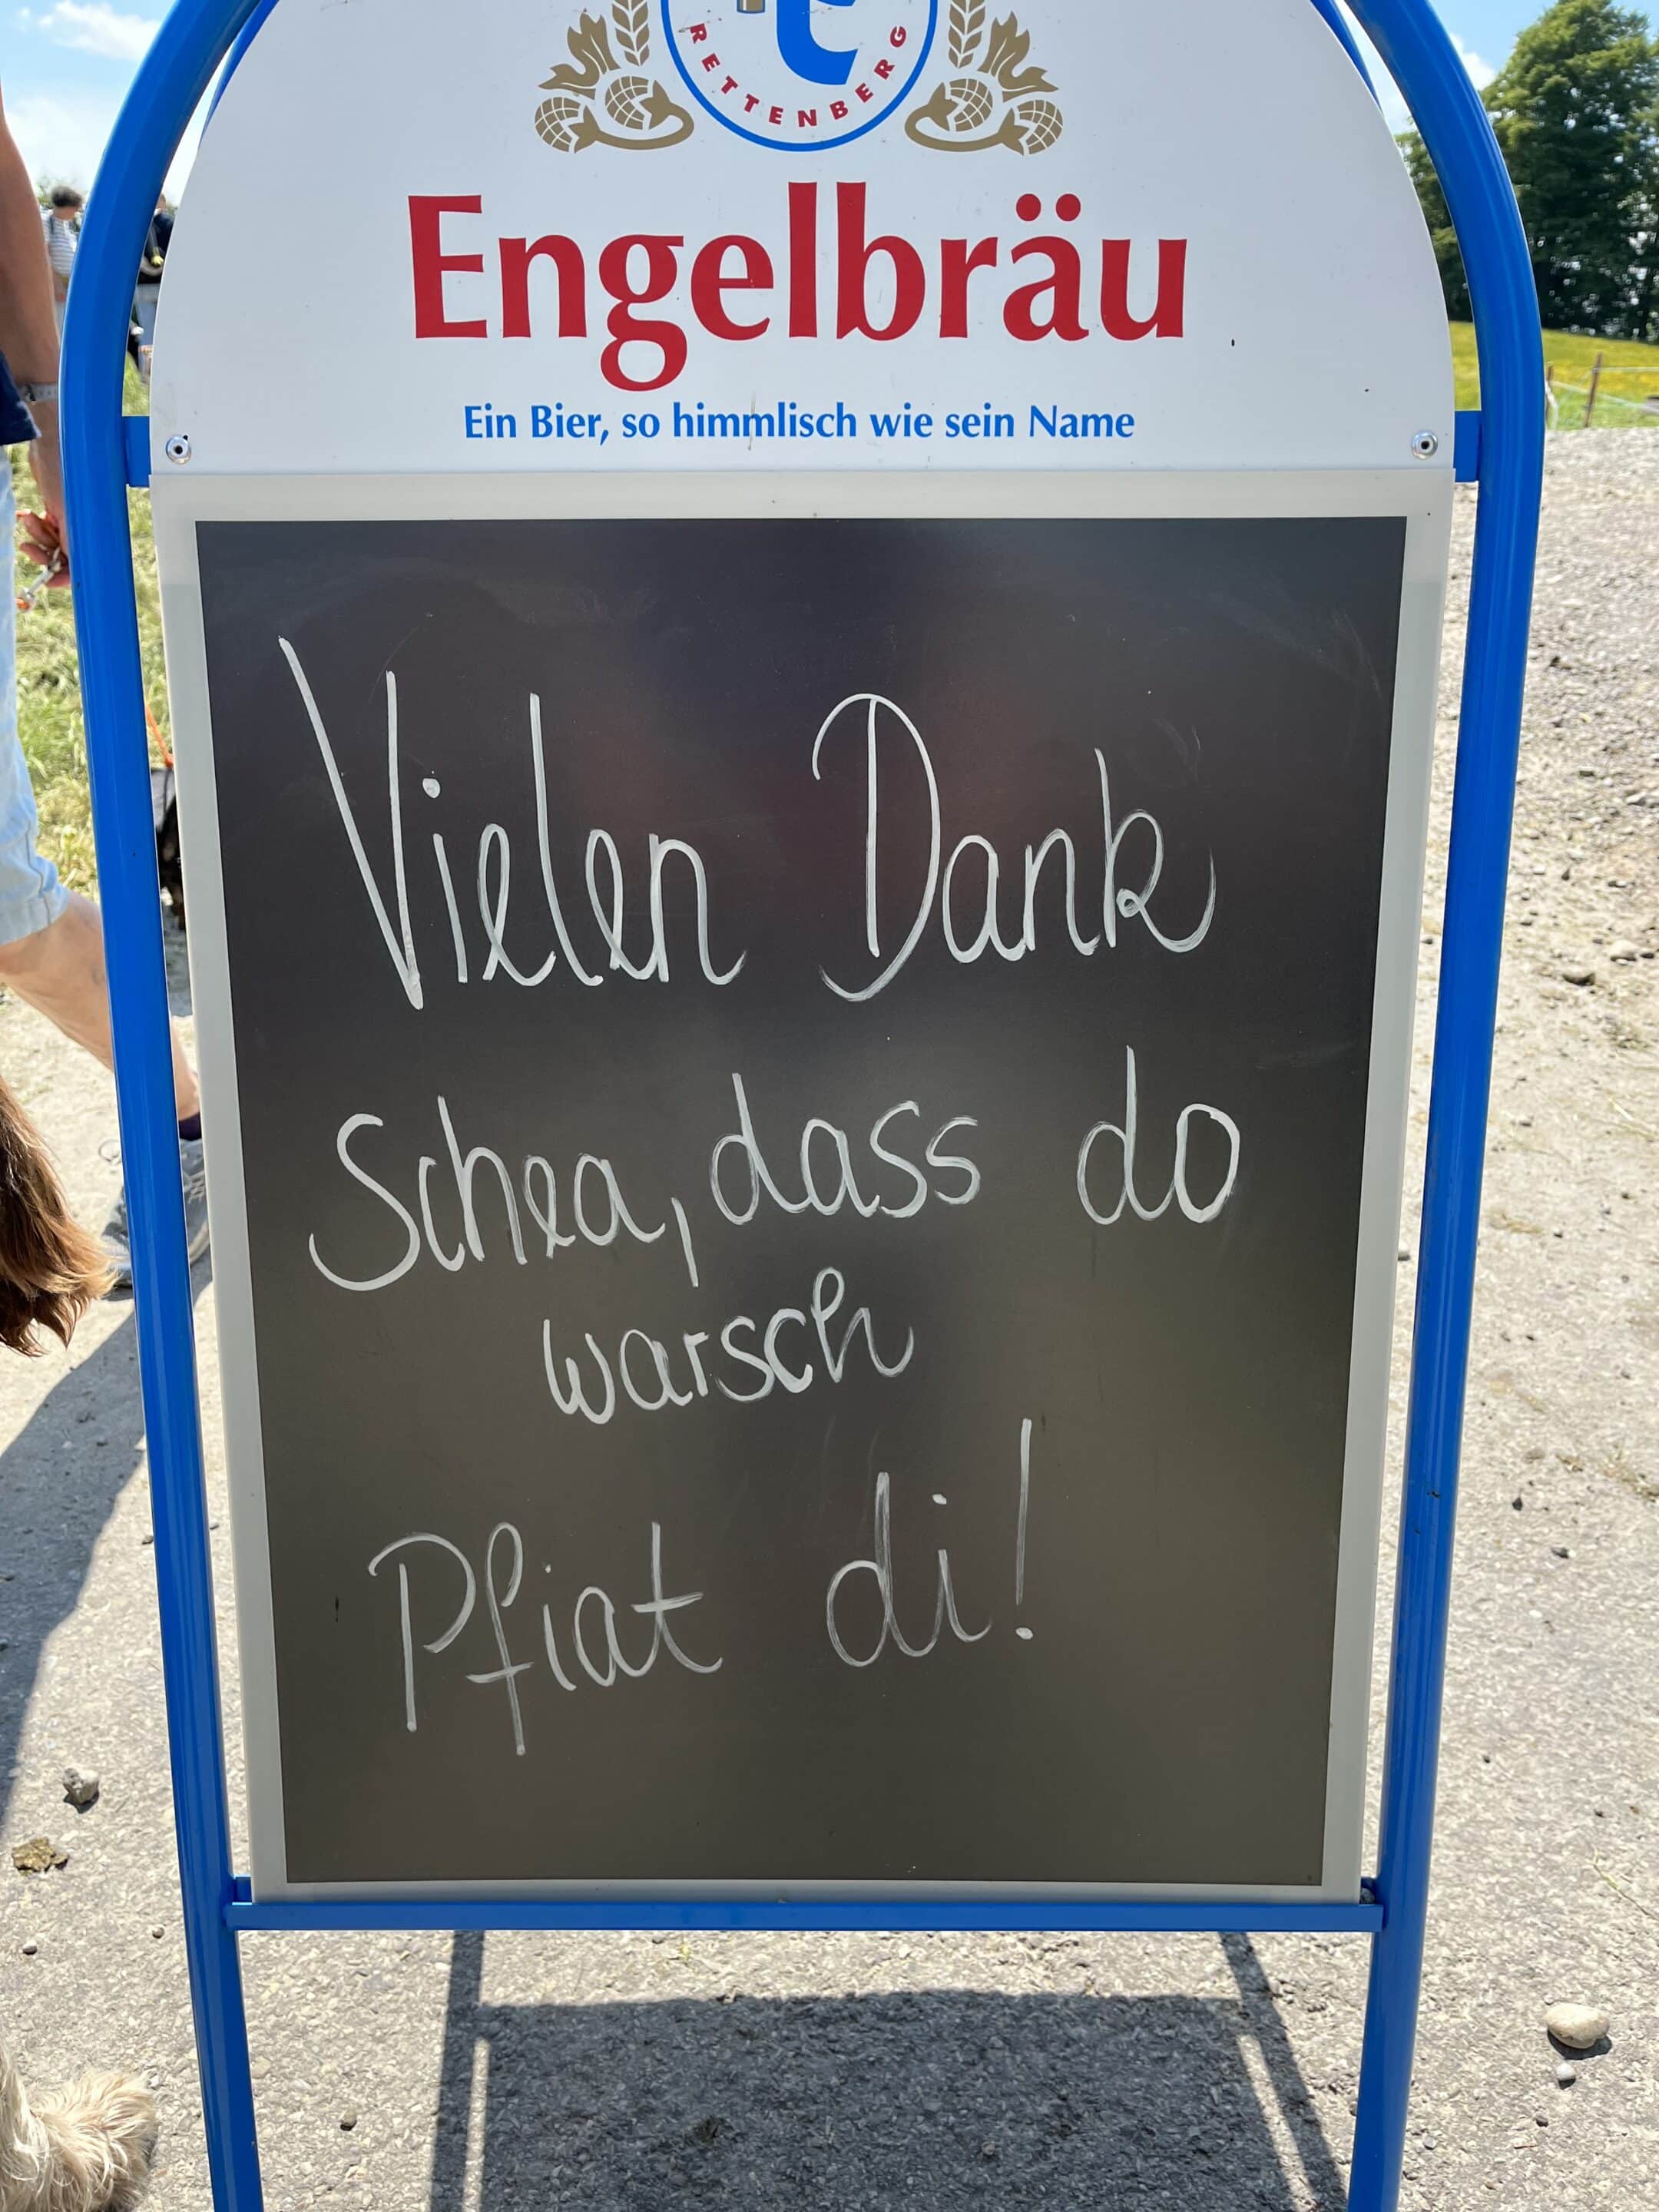 RETTENBERG
Engelbräu
Ein Bier, so himmlisch wie sein Name
Vielen Dank
Schea, dass do
warsch
Pfiat di!